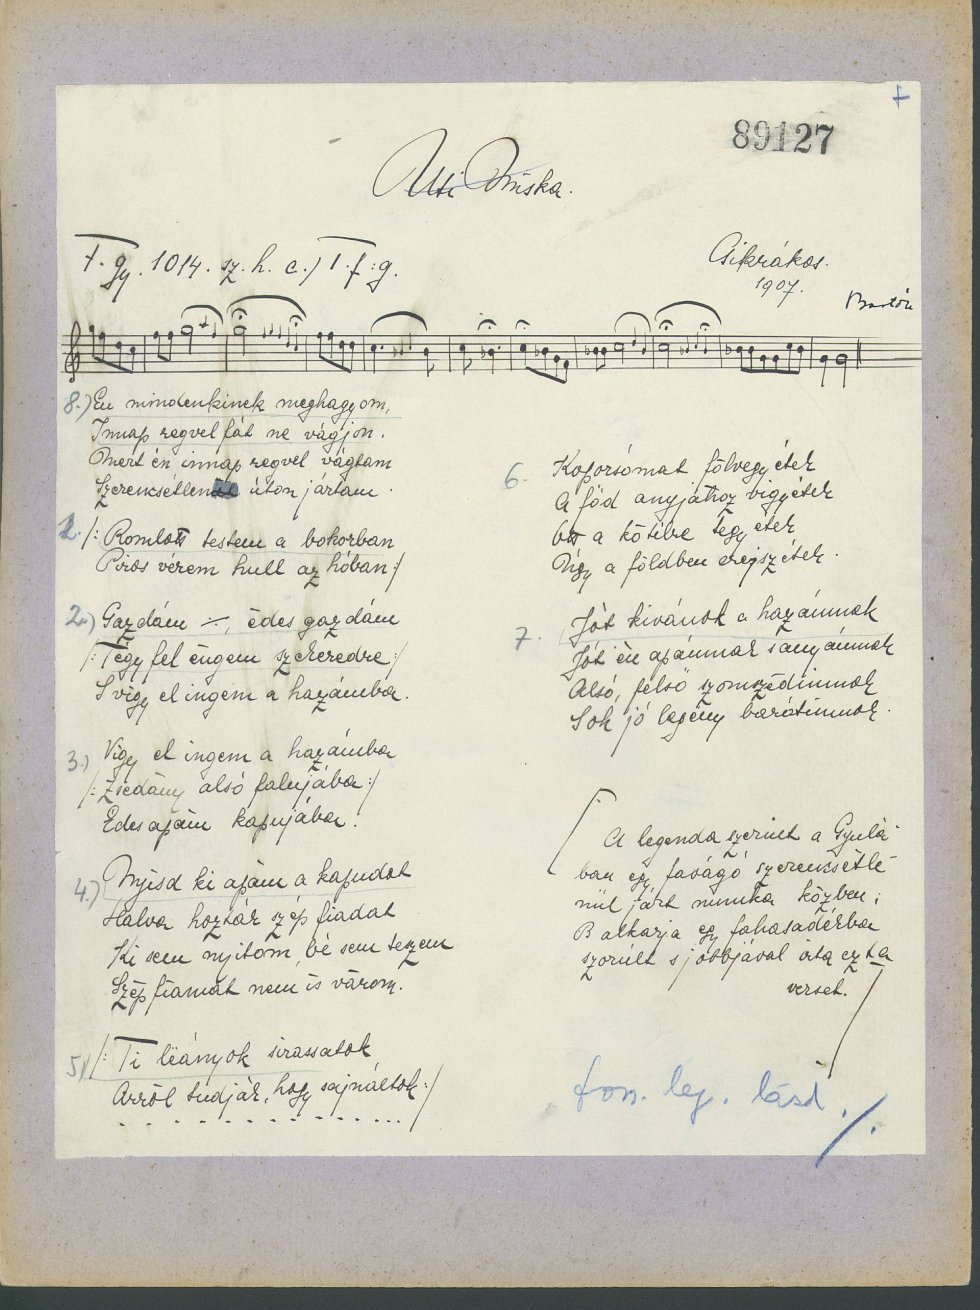 89127
Uti Miska.
F. gy. 1014. sz. h. c.) T. f: g.
Csikrákos.
1907.
Bartók
8.) Én mindenkinek meghagyom,
Innap regvel fát ne vágjon.
Mert én innap regvel vágtam
Szerencsétlen úton jártam.
1. /: Romlott testem a bokorban
Piros vérem hull az hóban:/
2.) Gazdám –, édes gazdám
/: Tégy fel éngem szekeredre:/
S vigy el ingem a hazámba.
3.) Vigy el ingem a hazámba
/: Zsédány alsó falujába:/
Édes apám kapujába.
4.) Nyisd ki apám a kapudot
Halva hozták szép fiadat
Ki sem nyitom, bé sem teszem
Szép fiamat nem is várom.
5.) /: Ti léányok sirassatok
Arról tudják, hogy sajnáltok:/
. . . . . . . . . . . . . .
6. Koporsómat fölvegyétek
A föd anyjához vigyétek
Ott a kötibre tegyétek
Úgy a földben erejszétek.
7. Jót kivánok a hazámnak
Jót én apámnak s anyámnak
Alsó, felső szomszédimnak
Sok jó legény barátimnak.
[A legenda szerint a Gyulá-
ban egy favágó szerencsétle-
nül járt munka közben;
B alkarja egy fahasadékba
szorult s jobbjával írta ezt a
verset.]
fon. lej. lásd ./.